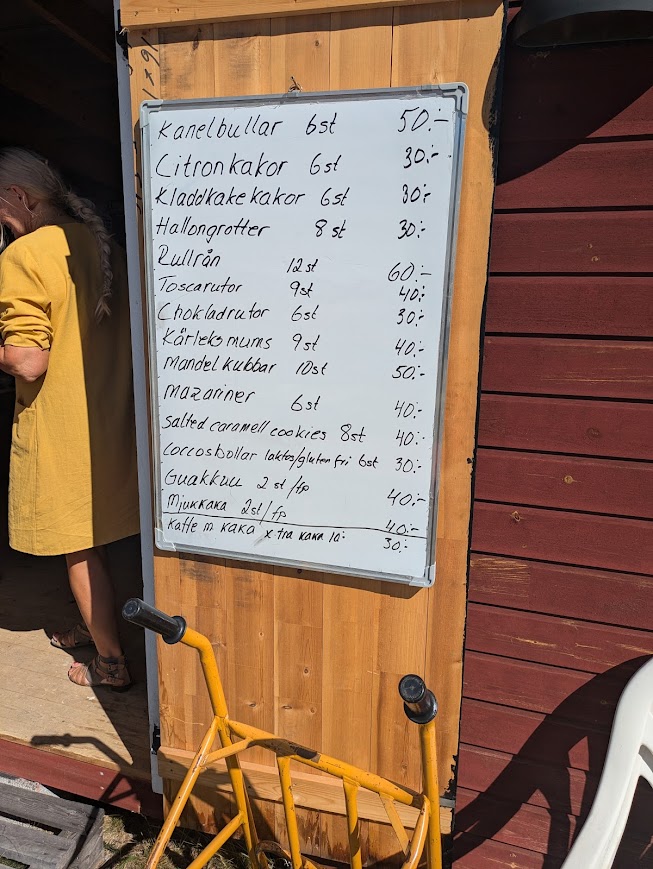 1x91
Kanelbullar 6st 50:-
Citronkakor 6st 30:-
Kladdkakekakor 6st 30:-
Hallongrotter 8st 30:-
Rullrån 12st 60:-
Toscarutor 9st 40:-
Chokladrutor 6st 30:-
Kärleksmums 9st 40:-
Mandelkubbar 10st 50:-
Mazariner 6st 40:-
Salted caramell cookies 8st 40:-
Coccosbollar laktos/glutenfri 6st 30:-
Guakkuu 2st/fp 40:-
Mjukkaka 2st/fp 40:-
Kaffe m kaka xtra kaka 10:- 30:-